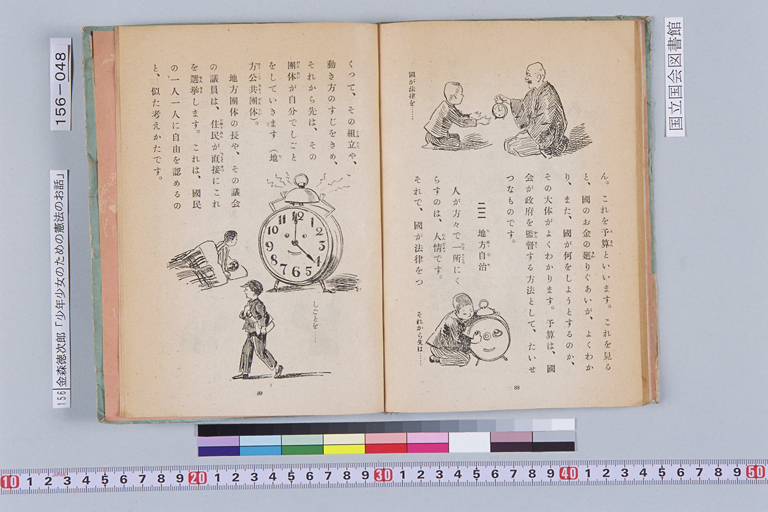 國が法律を……
ん。これを予算といいます。これを見る
と、國のお金の廻りぐあいが、よくわか
り、また、國が何をしようとするのか、
その大体がよくわかります。予算は、國
会が政府を監督する方法として、たいせ
つなものです。
二二 地方自治
人が方々で一所にく
らすのは、人情です。
それで、國が法律をつ
それから先は……
88
くって、その組立や、
動き方のすじをきめ、
それから先は、その
團体が自分でしごと
をしていきます（地
方公共團体）。
地方團体の長や、その議会
の議員は、住民が直接にこれ
を選挙します。これは、國民
の一人一人に自由を認めるの
と、似た考えかたです。
12 1 2 3 4 5 6 7 8 9 10 11
しごとを……
89
156-048
156 金森徳次郎「少年少女のための憲法のお話」
国立国会図書館
10 1 2 3 4 5 6 7 8 9 20 1 2 3 4 5 6 7 8 9 30 1 2 3 4 5 6 7 8 9 40 1 2 3 4 5 6 7 8 9 50